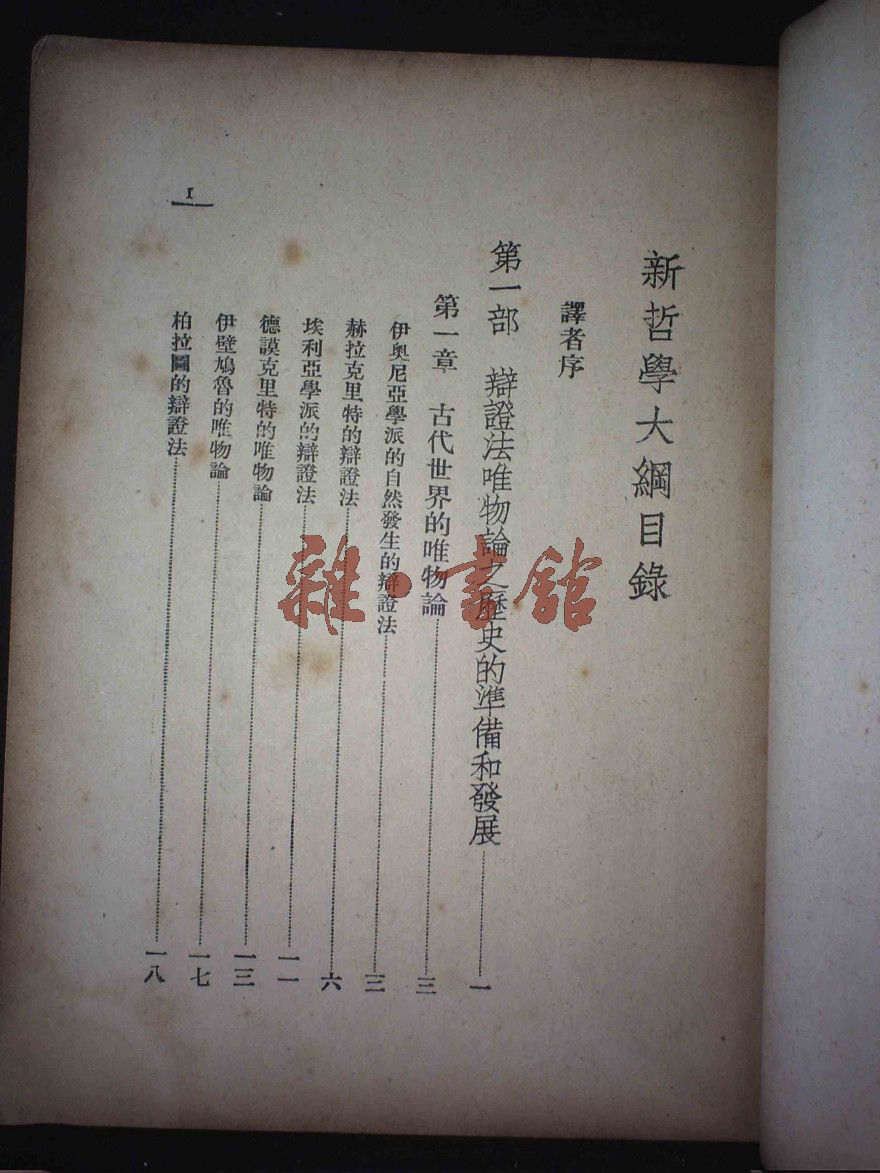 新哲學大綱目錄
譯者序
第一部 辯證法唯物論之歷史的準備和發展 一
第一章 古代世界的唯物論 三
伊奧尼亞學派的自然發生的辯證法 三
赫拉克里特的辯證法 六
埃利亞學派的辯證法 一一
德謨克里特的唯物論 一三
伊壁鳩魯的唯物論 一七
柏拉圖的辯證法 一八
I
雜·書館